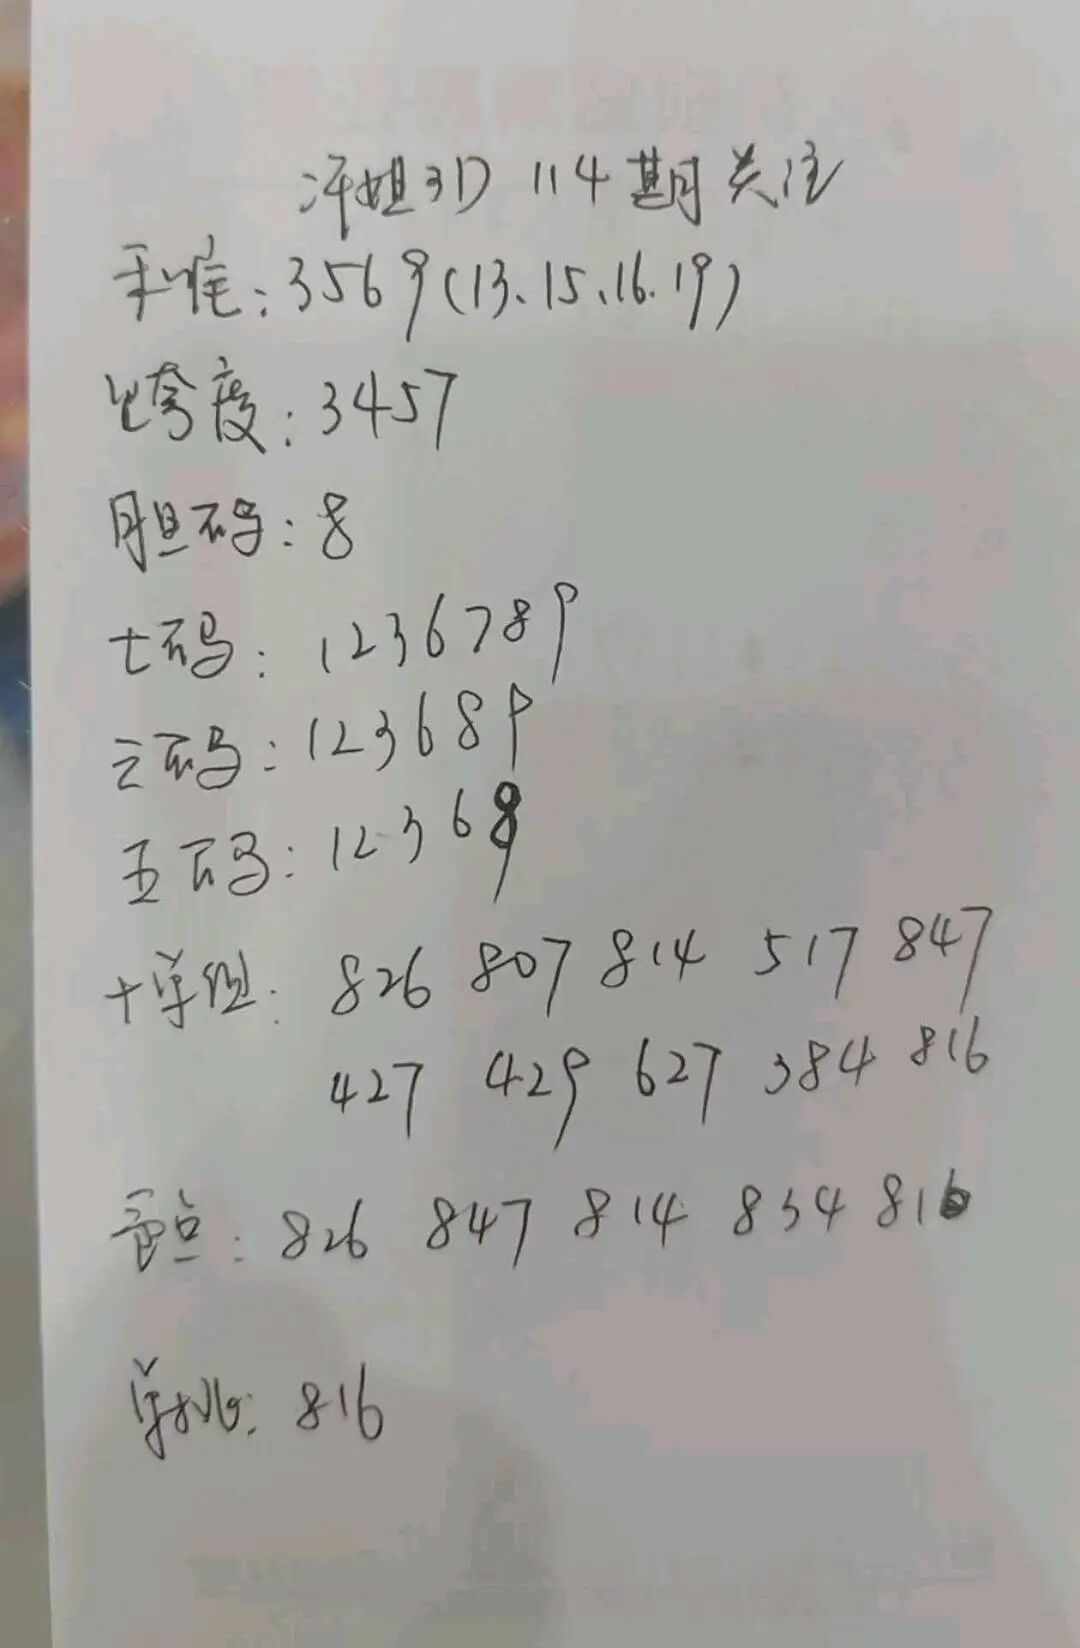 汗姐3D 114期关注
和值:3569(13.15、16.19)
跨度:3457
胆码:8
七码:1236789
六码:123689
五码:12368
十单组:826 807 814 517 847
427 429 627 384 816
重点:826 847 814 834 816
单挑:816